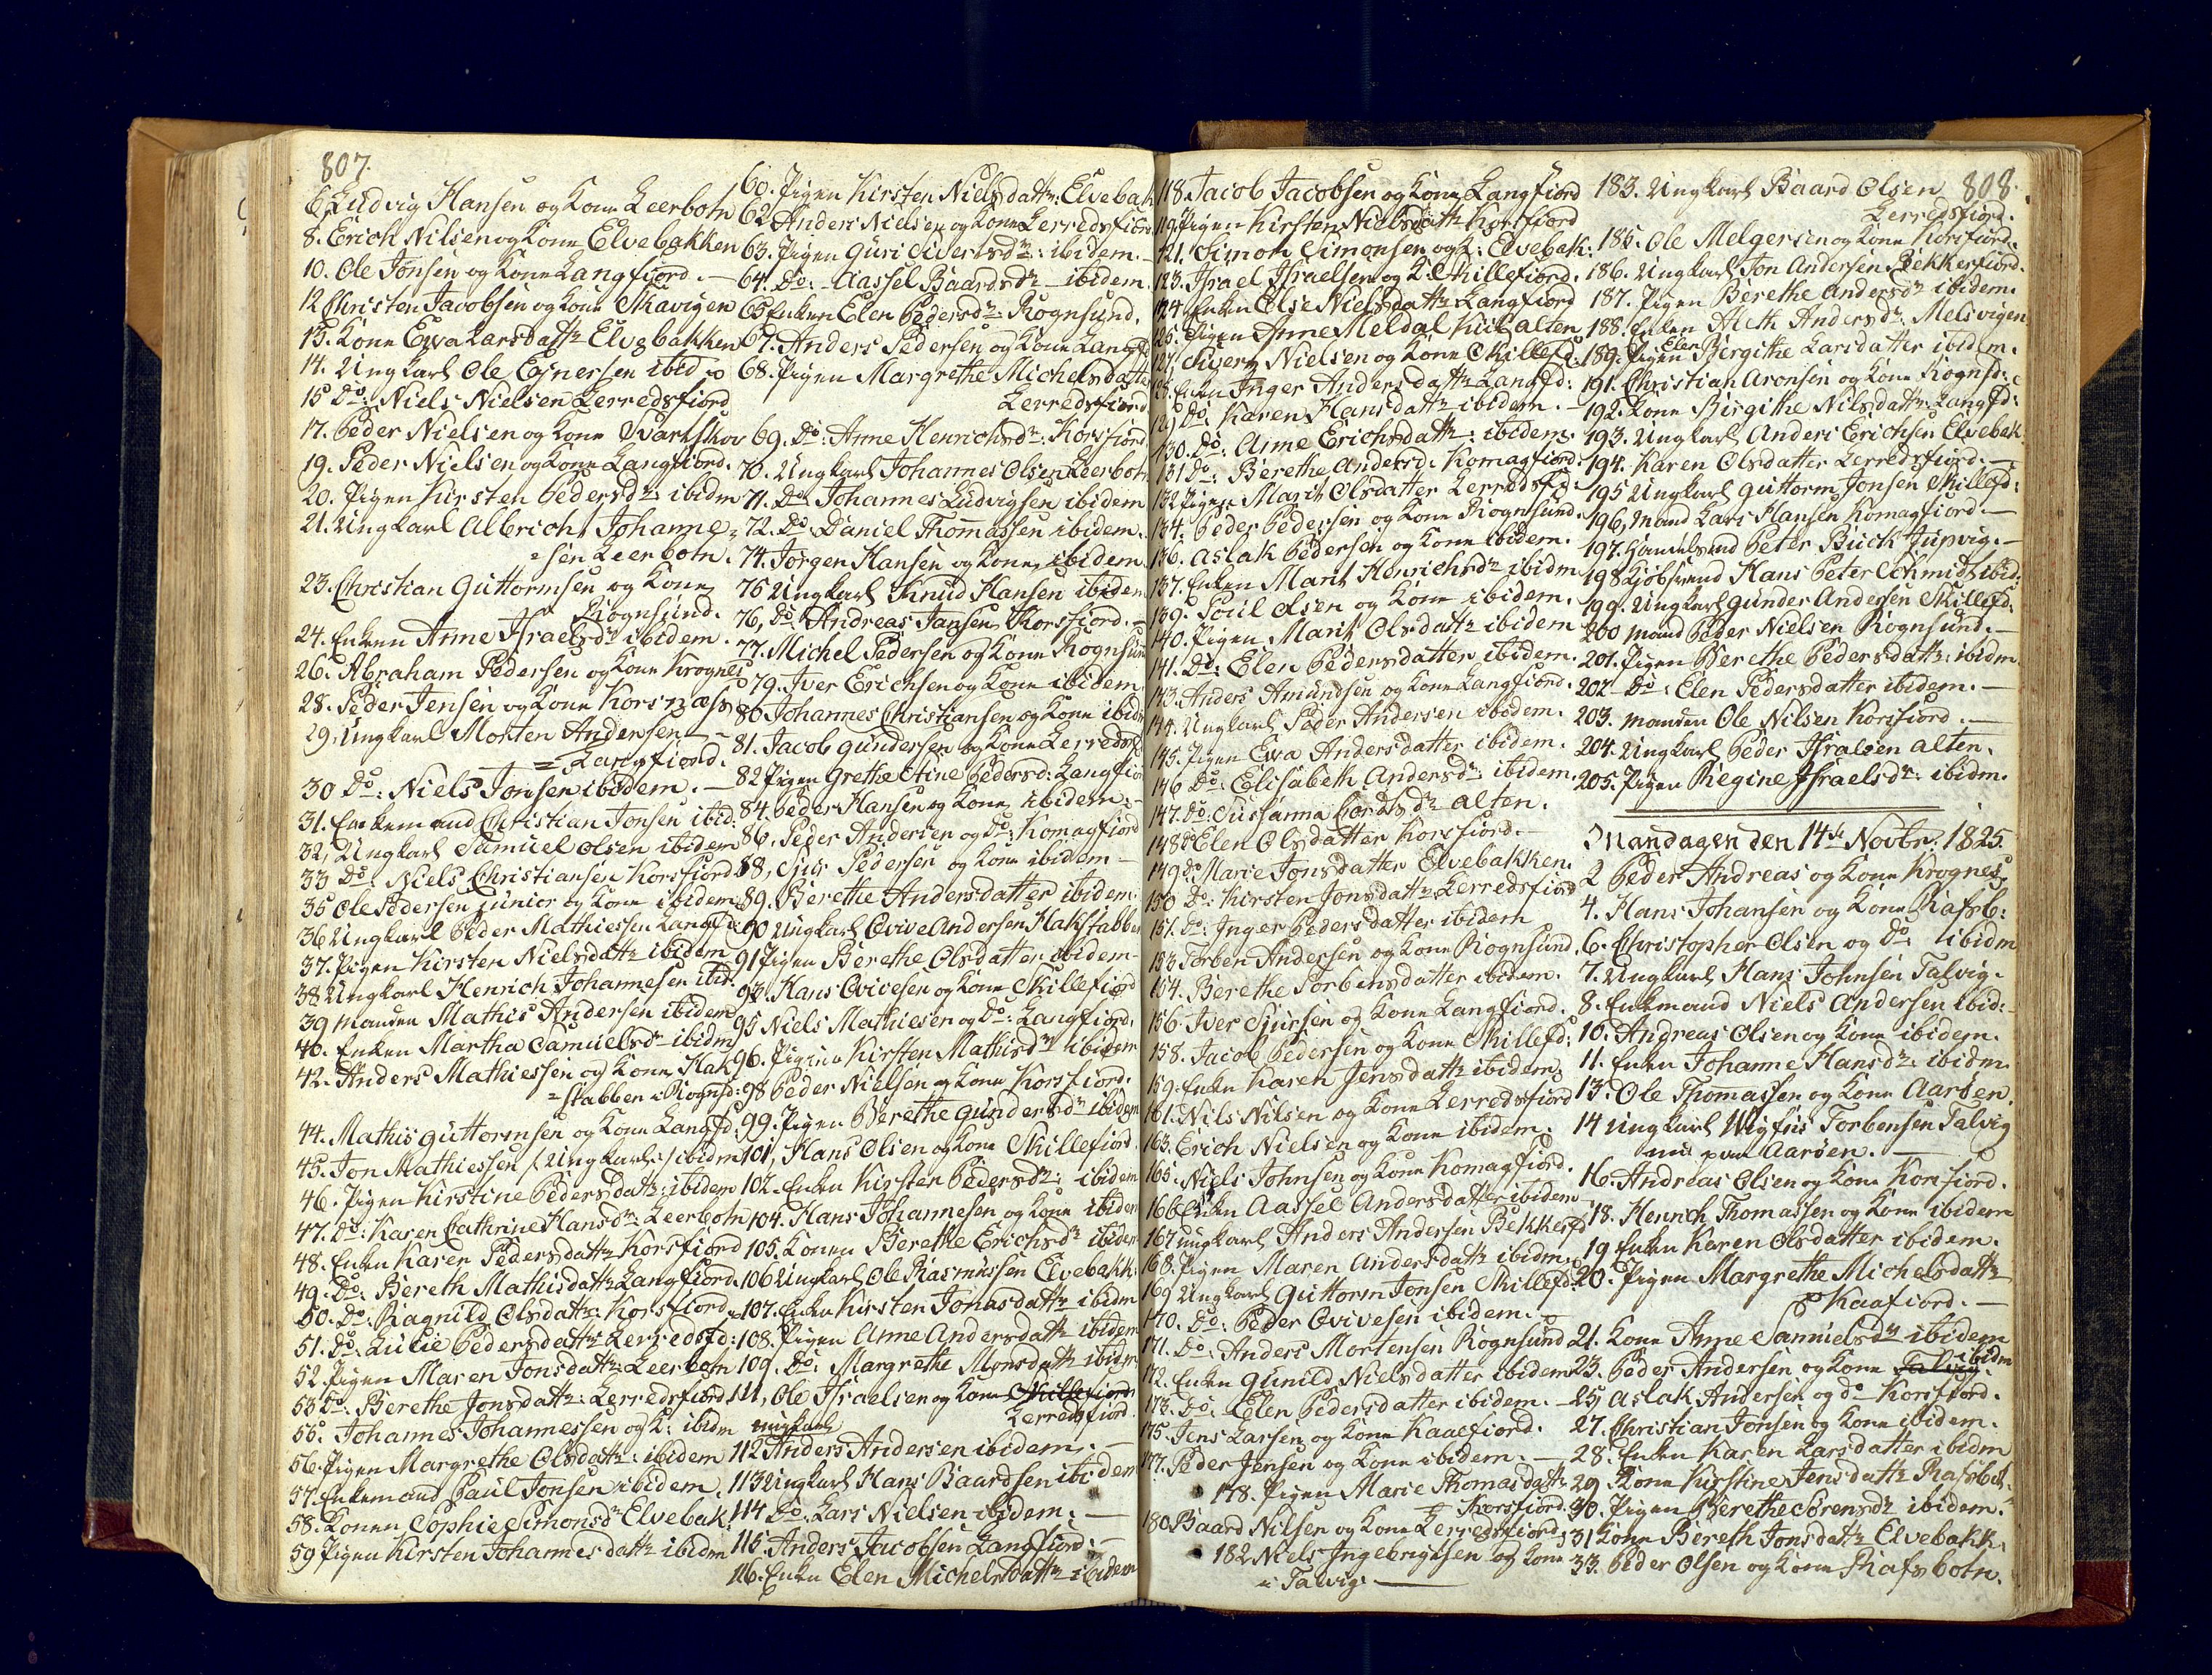 807.
6. Ludvig Hansen og Kone Leerbotn
8. Erich Nilsen og Kone Elvebakken
10. Ole Jonsen og Kone Langfiord. —
12 Christen Jacobsen og Kone Skavigen
13. Kone Ewa Larsdattr Elvebakken
14. Ungkarl Ole Ejnersen ibid
15 Do: Niels Nielsen Lerredsfiord
17. Peder Nielsen og Kone Svartskov
19. Peder Nielsen og Kone Langfiord.
20. Pigen Kirsten Pedersdr ibidm
21. Ungkarl Albrich Johanne=
=sen Leerbotn.
23. Christian Guttormsen og Kone
Rognsund.
24. Enken Anne Israelsdr ibidem.
26. Abraham Pedersen og Kone Krognes
28. Peder Jensen og Kone Korsnæss
29. Ungkarl Morten Andersen —
= Langfiord.
30 Do: Niels Jonsen ibidem. —
31. Enkemand Christian Jonsen ibid:
32, Ungkarl Samuel Olsen ibidem
33 Do: Niels Christiansen Korsfiord
35 Ole Pedersen junior og Kone ibidem
36 Ungkarl Peder Mathiesen Langfd:
37. Pigen Kirsten Nielsdattr ibidem
38 Ungkarl Henrich Johannesen ibid.
39 Manden Mathis Andersen ibidem
40. Enken Martha Samuelsdr ibidm
42. Anders Mathiessen og Kone Hak
=stabben i Rognsd:
44. Mathis Guttormsen og Kone Langfd:
45. Jon Mathiessen /:Ungkarl:/ ibidm
46. Pigen Kirstine Pedersdattr: ibidem
47. Do: Karen Cathrine Hansdr: Leerbotn
48. Enken Karen Pedersdattr Korsfiord
49. Do: Bereth Mathisdattr Langfiord.
50. Do: Ragnild Olsdattr: Korsfiord
51. Do: Lucie Pedersdattr Lerredsfd:
52. Pigen Maren Jonsdattr: Leerbotn
53 Do: Berethe Jonsdattr: Lerredsfiord
55. Johannes Johannessen og K: ibidm
56. Pigen Margrethe Olsdattr: ibidem
57. Enkemand Paul Jonsen ibidem.
58. Konen Sophie Simonsdr Elvebak:
59 Pigen Kirsten Johannesdattr ibidm
60. Pigen Kirsten Nielsdattr: Elvebak
62 Anders Nielsen og Kone Lerredsfiord
63. Pigen Guri Sivertsdr: ibidem. —
64. Do: Aassel Baardsdr — ibidem.
65 Enken Elen Pedersdr: Rognsund.
67. Anders Pedersen og Kone Langf
68. Pigen Margrethe Michelsdatter
Lerredsfiord
69. Do: Anne Henrichsdr: Korsfiord
70. Ungkarl Johannes Olsen Leerbotn
71. Do Johannes Ludvigsen ibidem
72. Do Daniel Thomassen ibidem.
74. Jørgen Hansen og Kone ibidem
75 Ungkarl Knud Hansen ibidem
76, Do: Andreas Jansen Korsfiord. —
77. Michel Pedersen og Kone Rognsun
79. Iver Erichsen og Kone ibidem.
80 Johannes Christiansen og Kone ibidm
81. Jacob Gundersen og Kone Lerredsf
82 Pigen Grethe Stine Pedersd: Langfior
84. Peder Hansen og Kone ibidem: —
86. Peder Andersen og Do: Komagfiord
88, Sjur Pedersen og Kone ibidem —
89. Berethe Andersdatter ibidem:
90 Ungkarl Ovive Andersen Hakstabben
91 Pigen Berethe Olsdatter ibidem —
93. Hans Ovivesen og Kone Skillefiord
95 Niels Mathiesen og Do: Langfiord.
96. Pigen Kirsten Mathisdr ibidem
98 Peder Nielsen og Kone Korsfiord.
99. Pigen Berethe Gundersdr ibidem
101, Hans Olsen og Kone Skillefiord.
102. Enken Kirsten Pedersdr: ibidem
104. Hans Johannesen og Kone ibidem
105. Konen Berethe Erichsdr ibidem
106 Ungkarl Ole Rasmussen Elvebakk:
107. Enken Kirsten Jonasdattr ibidm
108. Pigen Anne Andersdattr ibidem
109. Do: Margrethe Monsdattr ibidm
111, Ole Israelsen og Kone Skillefiord
Lerredsfiord.
ungkarl
112 Anders Andersen ibidem. —
113 Ungkarl Hans Baardsen ibidem
114 Do: Lars Nielsen ibidem: —
115. Anders Jacobsen Langfiord: —
116. Enken Elen Michelsdattr ibidem
118. Jacob Jacobsen og Kone Langfiord
119. Pigen Kirsten Nielsdattr Korsfiord
121. Simon Simonsen og K: Elvebak:
123. Israel Israelsen og K: Skillefiord.
124 Enken Else Nielsdattr Langfiord
125. Pigen Anne Meldal Kiil Alten
127. Sivert Nielsen og Kone Skillefd:
128. Enken Inger Andersdattr Langfd:
129 Do. Karen Hansdattr ibidem. —
130. Do: Anne Erichsdattr: ibidem.
131 Do: Berethe Andersd: Komagfiord:
132 Pigen Marit Olsdatter Lerredsfd:
134. Peder Pedersen og Kone Rognsund.
136. Aslak Pedersen og Kone ibidem.
137. Enken Marit Henrichsdr ibidm
139. Poul Olsen og Kone ibidem.
140. Pigen Marit Olsdattr ibidem
141. Do: Elen Pedersdatter ibidem.
143. Anders Amundsen og Kone Langfiord.
144. Ungkarl Peder Andersen ibidem.
145. Pigen Ewa Andersdatter ibidem.
146 Do: Elisabeth Andersdr: ibidem.
147. Do: Sussanna Cordtsdr Alten.
148 Do Elen Olsdatter Korsfiord. —
149 Do Marie Jonsdatter Elvebakken.
150 Do: Kirsten Jonsdattr Lerredsfiord
151. Do: Inger Pedersdatter ibidem
153 Torben Andersen og Kone Rognsund.
154. Berethe Torbensdatter ibidem.
156. Iver Sjursen og Kone Langfiord.
158. Jacob Pedersen og Kone Skillefd:
159. Enken Karen Jensdattr ibidem.
161. Nils Nilsen og Kone Lerredsfiord
163. Erich Nielsen og Kone ibidem.
165. Niels Johnsen og Kone Komagfiord.
166 Enken Aassel Andersdatter ibidem —
167 Ungkarl Anders Andersen Bekkerfd
168. Pigen Maren Andersdattr ibidm:
169 Ungkarl Guttorm Jonsen Skillefd:
170. Do: Peder Ovivesen ibidem.
171. Do: Anders Mortensen Rognsund
172. Enken Gunild Nielsdatter ibidem
173. Do: Elen Pedersdatter ibidem. —
175. Jens Larsen og Kone Kaaefiord.
177. Peder Jensen og Kone ibidem. —
178. Pigen Marie Thomasdattr
Korsfiord.
180 Baard Nilsen og Kone Lerredsfiord
182 Niels Ingebrigtsen og Kone
i Talvig. —
808.
183. Ungkarl Baard Olsen
Lerredsfiord.
185. Ole Melgersen og Kone Korsfiord.
186. Ungkarl Jon Andersen Bekkerfiord.
187. Pigen Berethe Andersdr ibidem.
188. Enken Aleth Andersdr: Melsvigen
189. Pigen Elen Birgithe Larsdatter ibidem.
191. Christian Aronsen og Kone Rognsd:
192. Kone Birgithe Nilsdattr: Langfd:
193. Ungkarl Anders Erichsen Elvebak
194. Karen Olsdatter Lerredsfiord. —
195 Ungkarl Guttorm Jonsen Skillefd:
196, Mand Lars Hansen Komagfiord —
197. Handelsmd Peter Buck Jupvig. —
198 Kjøbsvend Hans Peter Schmidt ibid:
199. Ungkarl Gunder Andersen Skillefd:
200 Mand Peder Nielsen Rognsund. —
201. Pigen Berethe Pedersdattr: ibidm
202 — Do: Elen Pedersdatter ibidem. —
203. Manden Ole Nilsen Korsfiord. —
204. Ungkarl Peder Israelsen Alten.
205. Pigen Regine Israelsdr: ibidm.
Mandagen den 14de Novbr: 1825.
2 Peder Andreas og Kone Krognes
4. Hans Johansen og Kone Rafsb:
6. Christopher Olsen og Do: ibidm
7. Ungkarl Hans Johnsen Talvig.
8. Enkemand Niels Andersen ibid:
10. Andreas Olsen og Kone ibidem.
11. Enken Johanne Hansdr: ibidm.
13. Ole Thomassen og Kone Aarøen.
14 Ungkarl Wigfus Torbensen Talvig
nu paa Aarøen. —
16. Andreas Olsen og Kone Korsfiord.
18. Henrich Thomassen og Kone ibidem
19 Enken Karen Olsdatter ibidem.
20. Pigen Margrethe Michelsdattr
Kaafiord. —
21. Kone Anne Samuelsdr ibidem
23. Peder Andersen og Kone Talvig. ibidm
25, Aslak Andersen og do Korsfiord.
27. Christian Jonsen og Kone ibidem.
28. Enken Karen Larsdatter ibidm
29. Kone Kirstine Jensdattr Rafsbot.
30. Pigen Berethe Sørensdr ibidem.
31 Kone Bereth Jonsdattr Elvebakk:
33. Peder Olsen og Kone Rafsbotn.